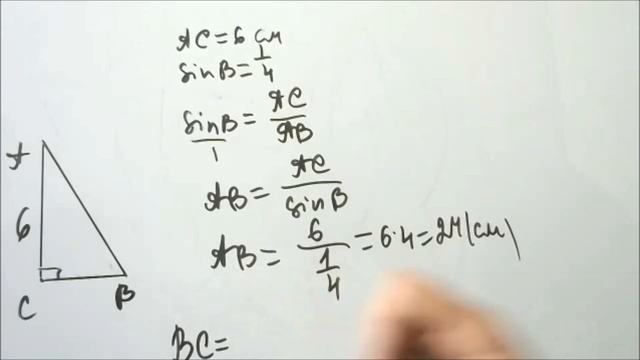 AC=6 см
sinB=1/4
sinB/1=AC/AB
AB=AC/sinB
AB=6/(1/4)=6·4=24(см)
BC=
A
6
C
B